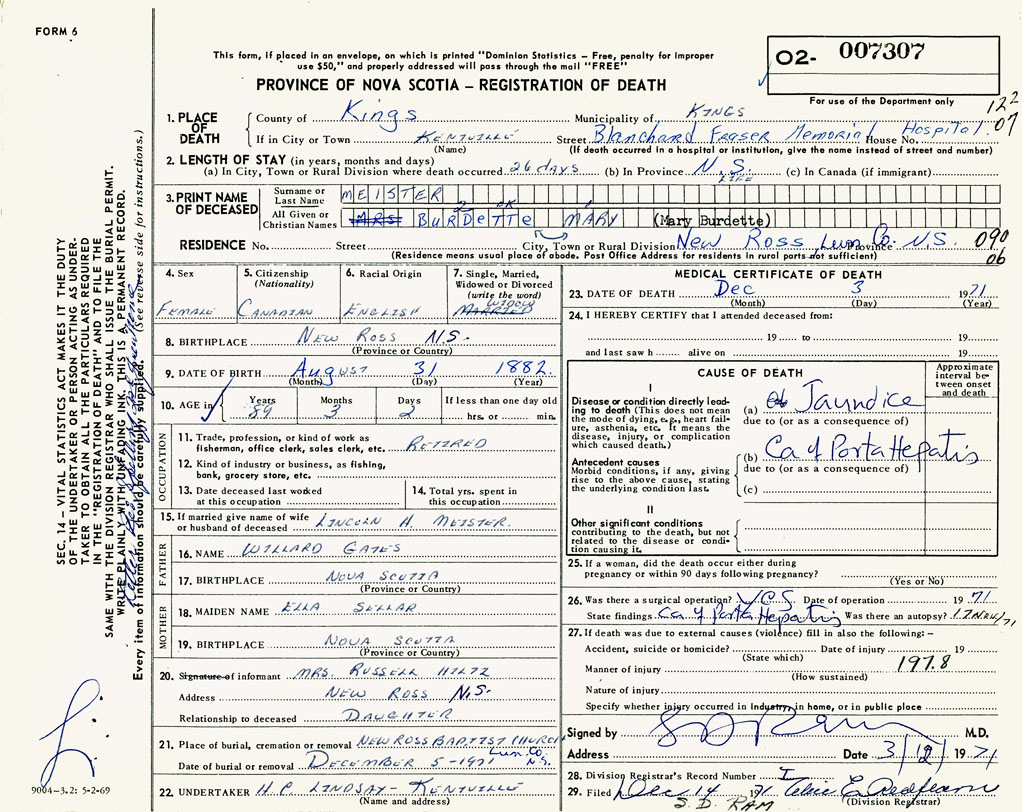 FORM 6
This form, if placed in an envelope, on which is printed "Dominion Statistics – Free, penalty for improper
use $50," and properly addressed will pass through the mail "FREE"
PROVINCE OF NOVA SCOTIA – REGISTRATION OF DEATH
02- 007307
For use of the Department only
122
07
1. PLACE OF DEATH
County of Kings Municipality of KINGS
If in City or Town KENTVILLE Street Blanchard Fraser Memorial Hospital House No.
(Name) (If death occurred in a hospital or institution, give the name instead of street and number)
2. LENGTH OF STAY (in years, months and days)
(a) In City, Town or Rural Division where death occurred 26 days (b) In Province N.S. LIFE (c) In Canada (if immigrant)
3. PRINT NAME OF DECEASED
Surname or Last Name MEISTER
All Given or Christian Names MRS BURDETTE 2 OK MARY 1 (Mary Burdette)
RESIDENCE No. Street City, Town or Rural Division New Ross Lun. Co. Province N.S. 090
06
(Residence means usual place of abode. Post Office Address for residents in rural parts not sufficient)
4. Sex
FEMALE
5. Citizenship (Nationality)
CANADIAN
6. Racial Origin
ENGLISH
7. Single, Married, Widowed or Divorced (write the word)
WIDOW
MARRIED
8. BIRTHPLACE NEW ROSS N.S.
(Province or Country)
9. DATE OF BIRTH August 31 1882.
(Month) (Day) (Year)
10. AGE in Years 89 Months 3 Days 2 If less than one day old
hrs. or min.
OCCUPATION
11. Trade, profession, or kind of work as fisherman, office clerk, sales clerk, etc. RETIRED
12. Kind of industry or business, as fishing, bank, grocery store, etc.
13. Date deceased last worked at this occupation
14. Total yrs. spent in this occupation
15. If married give name of wife or husband of deceased LINCOLN H. MEISTER.
FATHER
16. NAME WILLARD GATES
17. BIRTHPLACE NOVA SCOTIA
(Province or Country)
MOTHER
18. MAIDEN NAME ELLA SELLAR
19. BIRTHPLACE NOVA SCOTIA
(Province or Country)
20. Signature of informant MRS. RUSSELL HILTZ
Address NEW ROSS N.S.
Relationship to deceased DAUGHTER
21. Place of burial, cremation or removal NEW ROSS BAPTIST CHURCH
Lun. Co. N.S.
Date of burial or removal DECEMBER 5-1971
22. UNDERTAKER H.C. LINDSAY - KENTVILLE
(Name and address)
MEDICAL CERTIFICATE OF DEATH
23. DATE OF DEATH Dec 3 1971
(Month) (Day) (Year)
24. I HEREBY CERTIFY that I attended deceased from:
19 to 19
and last saw h alive on 19
CAUSE OF DEATH
Approximate interval between onset and death
I
Disease or condition directly leading to death (This does not mean the mode of dying, e.g., heart failure, asthenia, etc. It means the disease, injury, or complication which caused death.)
(a) Jaundice
due to (or as a consequence of)
Antecedent causes
Morbid conditions, if any, giving rise to the above cause, stating the underlying condition last.
(b) Ca of Porta Hepatis
due to (or as a consequence of)
(c)
II
Other significant conditions contributing to the death, but not related to the disease or condition causing it.
25. If a woman, did the death occur either during pregnancy or within 90 days following pregnancy?
(Yes or No)
26. Was there a surgical operation? Yes Date of operation 1971
State findings Ca of Porta Hepatis Was there an autopsy? 12 Nov/71
27. If death was due to external causes (violence) fill in also the following: –
Accident, suicide or homicide? Date of injury 19
(State which)
197.8
Manner of injury
(How sustained)
Nature of injury
Specify whether injury occurred in Industry, in home, or in public place
Signed by M.D.
Address Date 3/12/1971
28. Division Registrar's Record Number I
29. Filed Dec 14 1971
(Division Registrar)
S.D. RAM
SEC. 14 – VITAL STATISTICS ACT MAKES IT THE DUTY
OF THE UNDERTAKER OR PERSON ACTING AS UNDER-
TAKER TO OBTAIN ALL THE PARTICULARS REQUIRED
IN THE "REGISTRATION OF DEATH" AND TO FILE THE
SAME WITH THE DIVISION REGISTRAR WHO SHALL ISSUE THE BURIAL PERMIT.
WRITE PLAINLY WITH UNFADING INK. THIS IS A PERMANENT RECORD.
Every item of information should be carefully supplied. (See reverse side for instructions.)
9004-3.2: 5-2-69